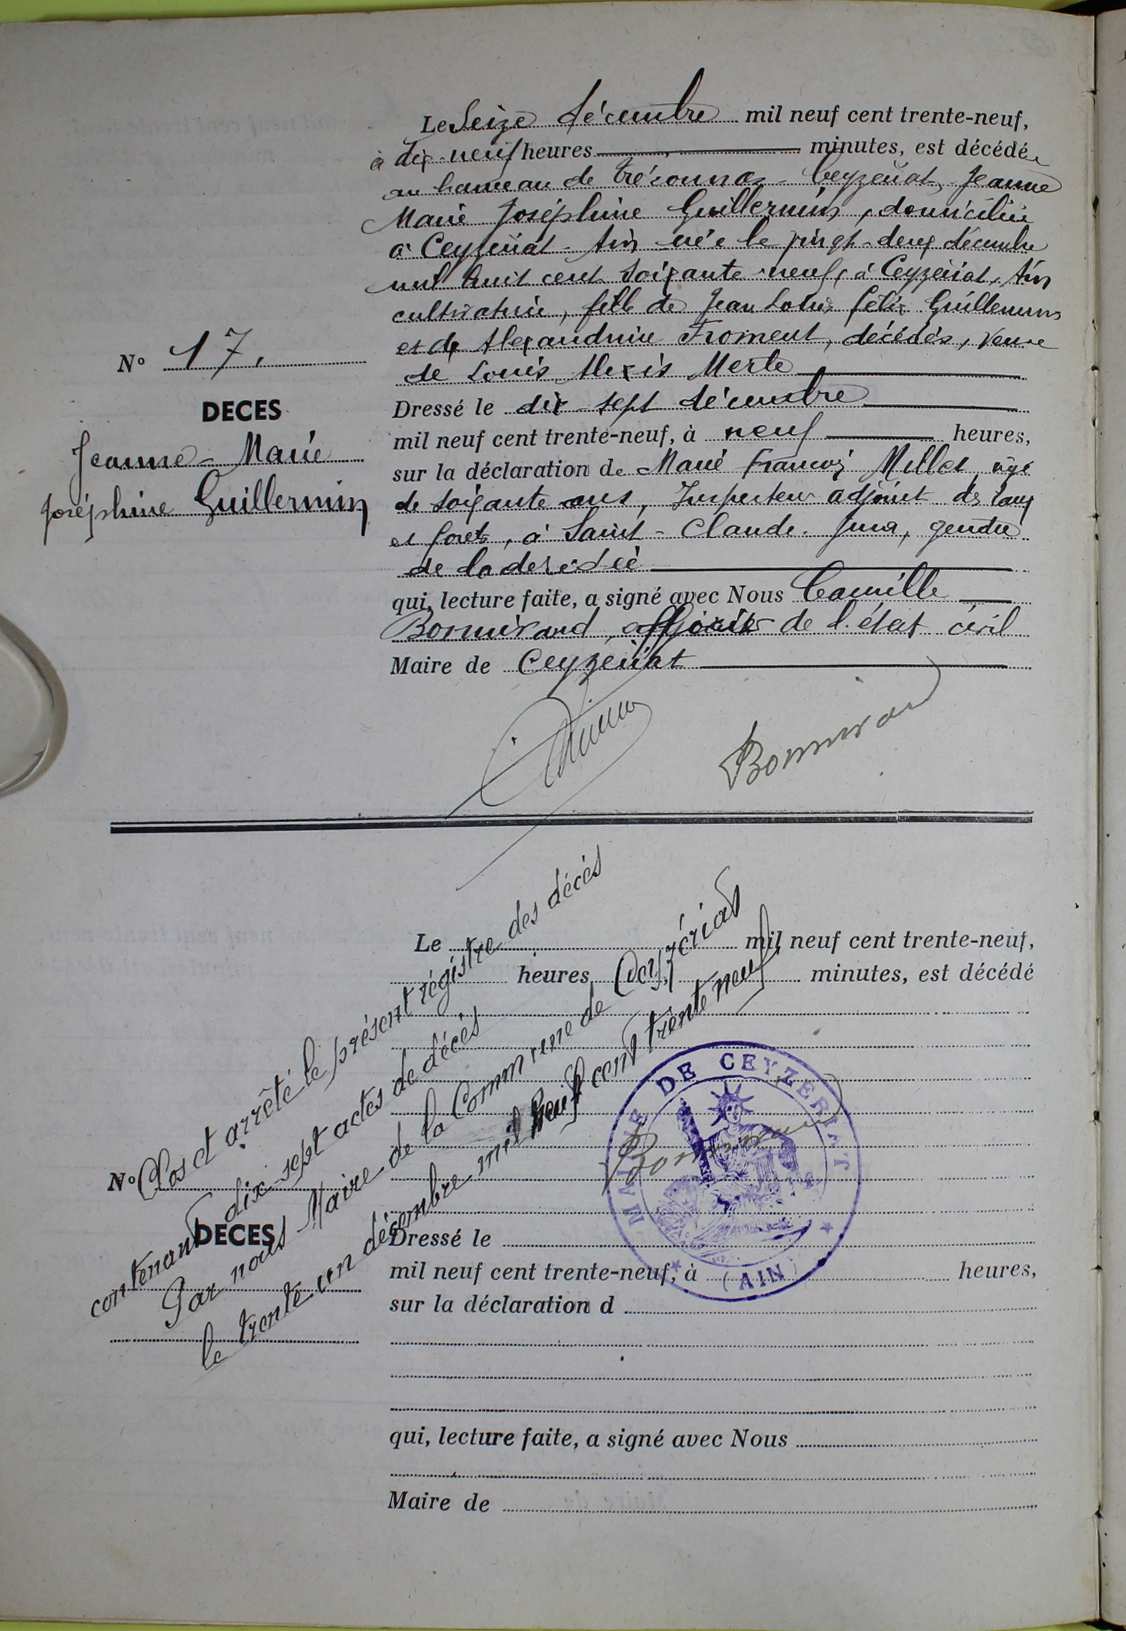 Le Seize décembre mil neuf cent trente-neuf,
à dix-neuf heures minutes, est décédée
au hameau de Tréconnaz - Ceyzériat, Jeanne
Marie Joséphine Guillermin, domiciliée
à Ceyzériat - Ain née le vingt-deux décembre
mil huit cent soixante neuf, à Ceyzériat, Ain
cultivatrice, fille de Jean Louis Félix Guillermin
et de Alexandrine Froment, décédés, veuve
de Louis Alexis Merle
N° 17.
DECES
Jeanne-Marie
Joséphine Guillermin
Dressé le dix-sept décembre
mil neuf cent trente-neuf, à neuf heures,
sur la déclaration de Marie François Millet, âgé
de soixante ans, Inspecteur adjoint des Eaux
et forêts, à Saint-Claude. Jura, gendre
de la décédée
qui, lecture faite, a signé avec Nous Camille
Bonnirand, officier de l'état civil
Maire de Ceyzériat
Bonnirand
Le mil neuf cent trente-neuf,
heures, minutes, est décédé
N°
DECES
Clos et arrêté le présent régistre des décès
contenant dix-sept actes de décès
Par nous Maire de la Commune de Ceyzériat
le trente un décembre mil neuf cent trente neuf.
MAIRIE DE CEYZERIAT
(AIN)
Bonnirand
Dressé le
mil neuf cent trente-neuf, à heures,
sur la déclaration d
qui, lecture faite, a signé avec Nous
Maire de